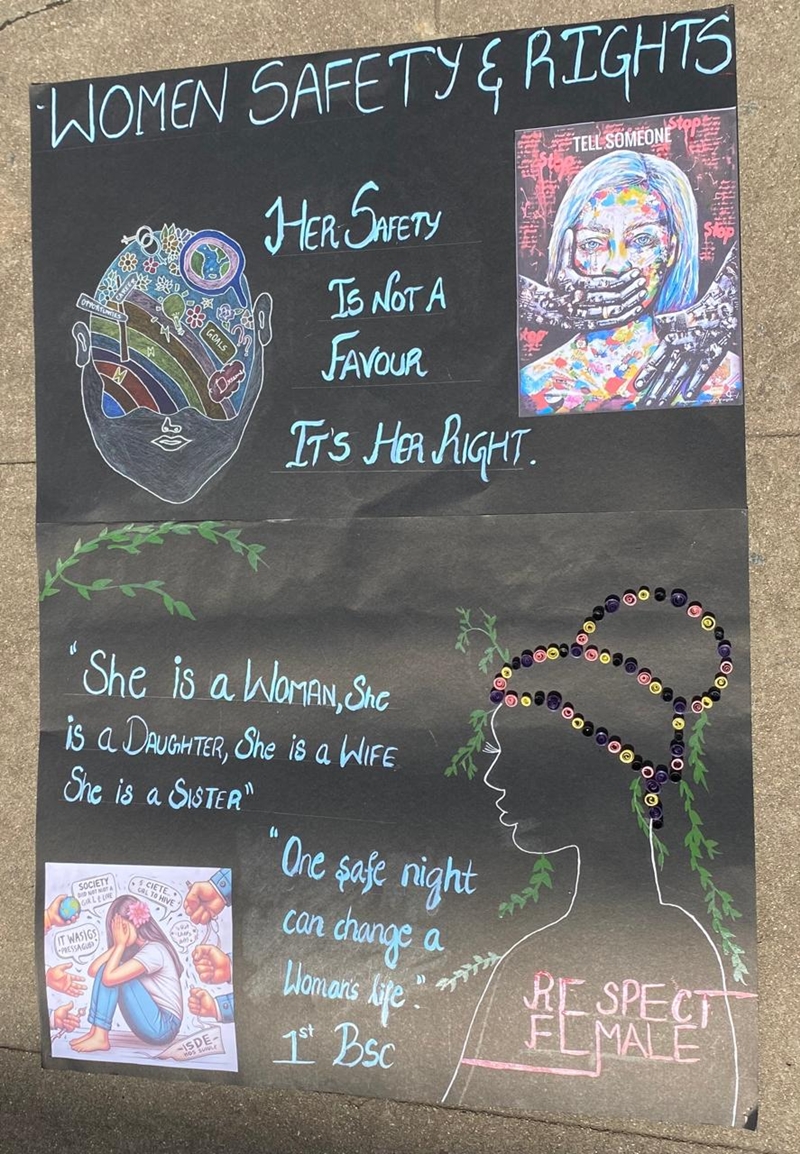 WOMEN SAFETY & RIGHTS
TELL SOMEONE
Stop
Stop
Stop
Stop
HER SAFETY
IS NOT A
FAVOUR
IT'S HER RIGHT.
OPPORTUNITIES
CAREER
GOALS
"She is a WOMAN, She
is a DAUGHTER, She is a WIFE
She is a SISTER"
"One safe night
can change a
Woman's life."
1st BSC
SOCIETY
IT WASIGS
-ISDE-
RESPECT
FEMALE